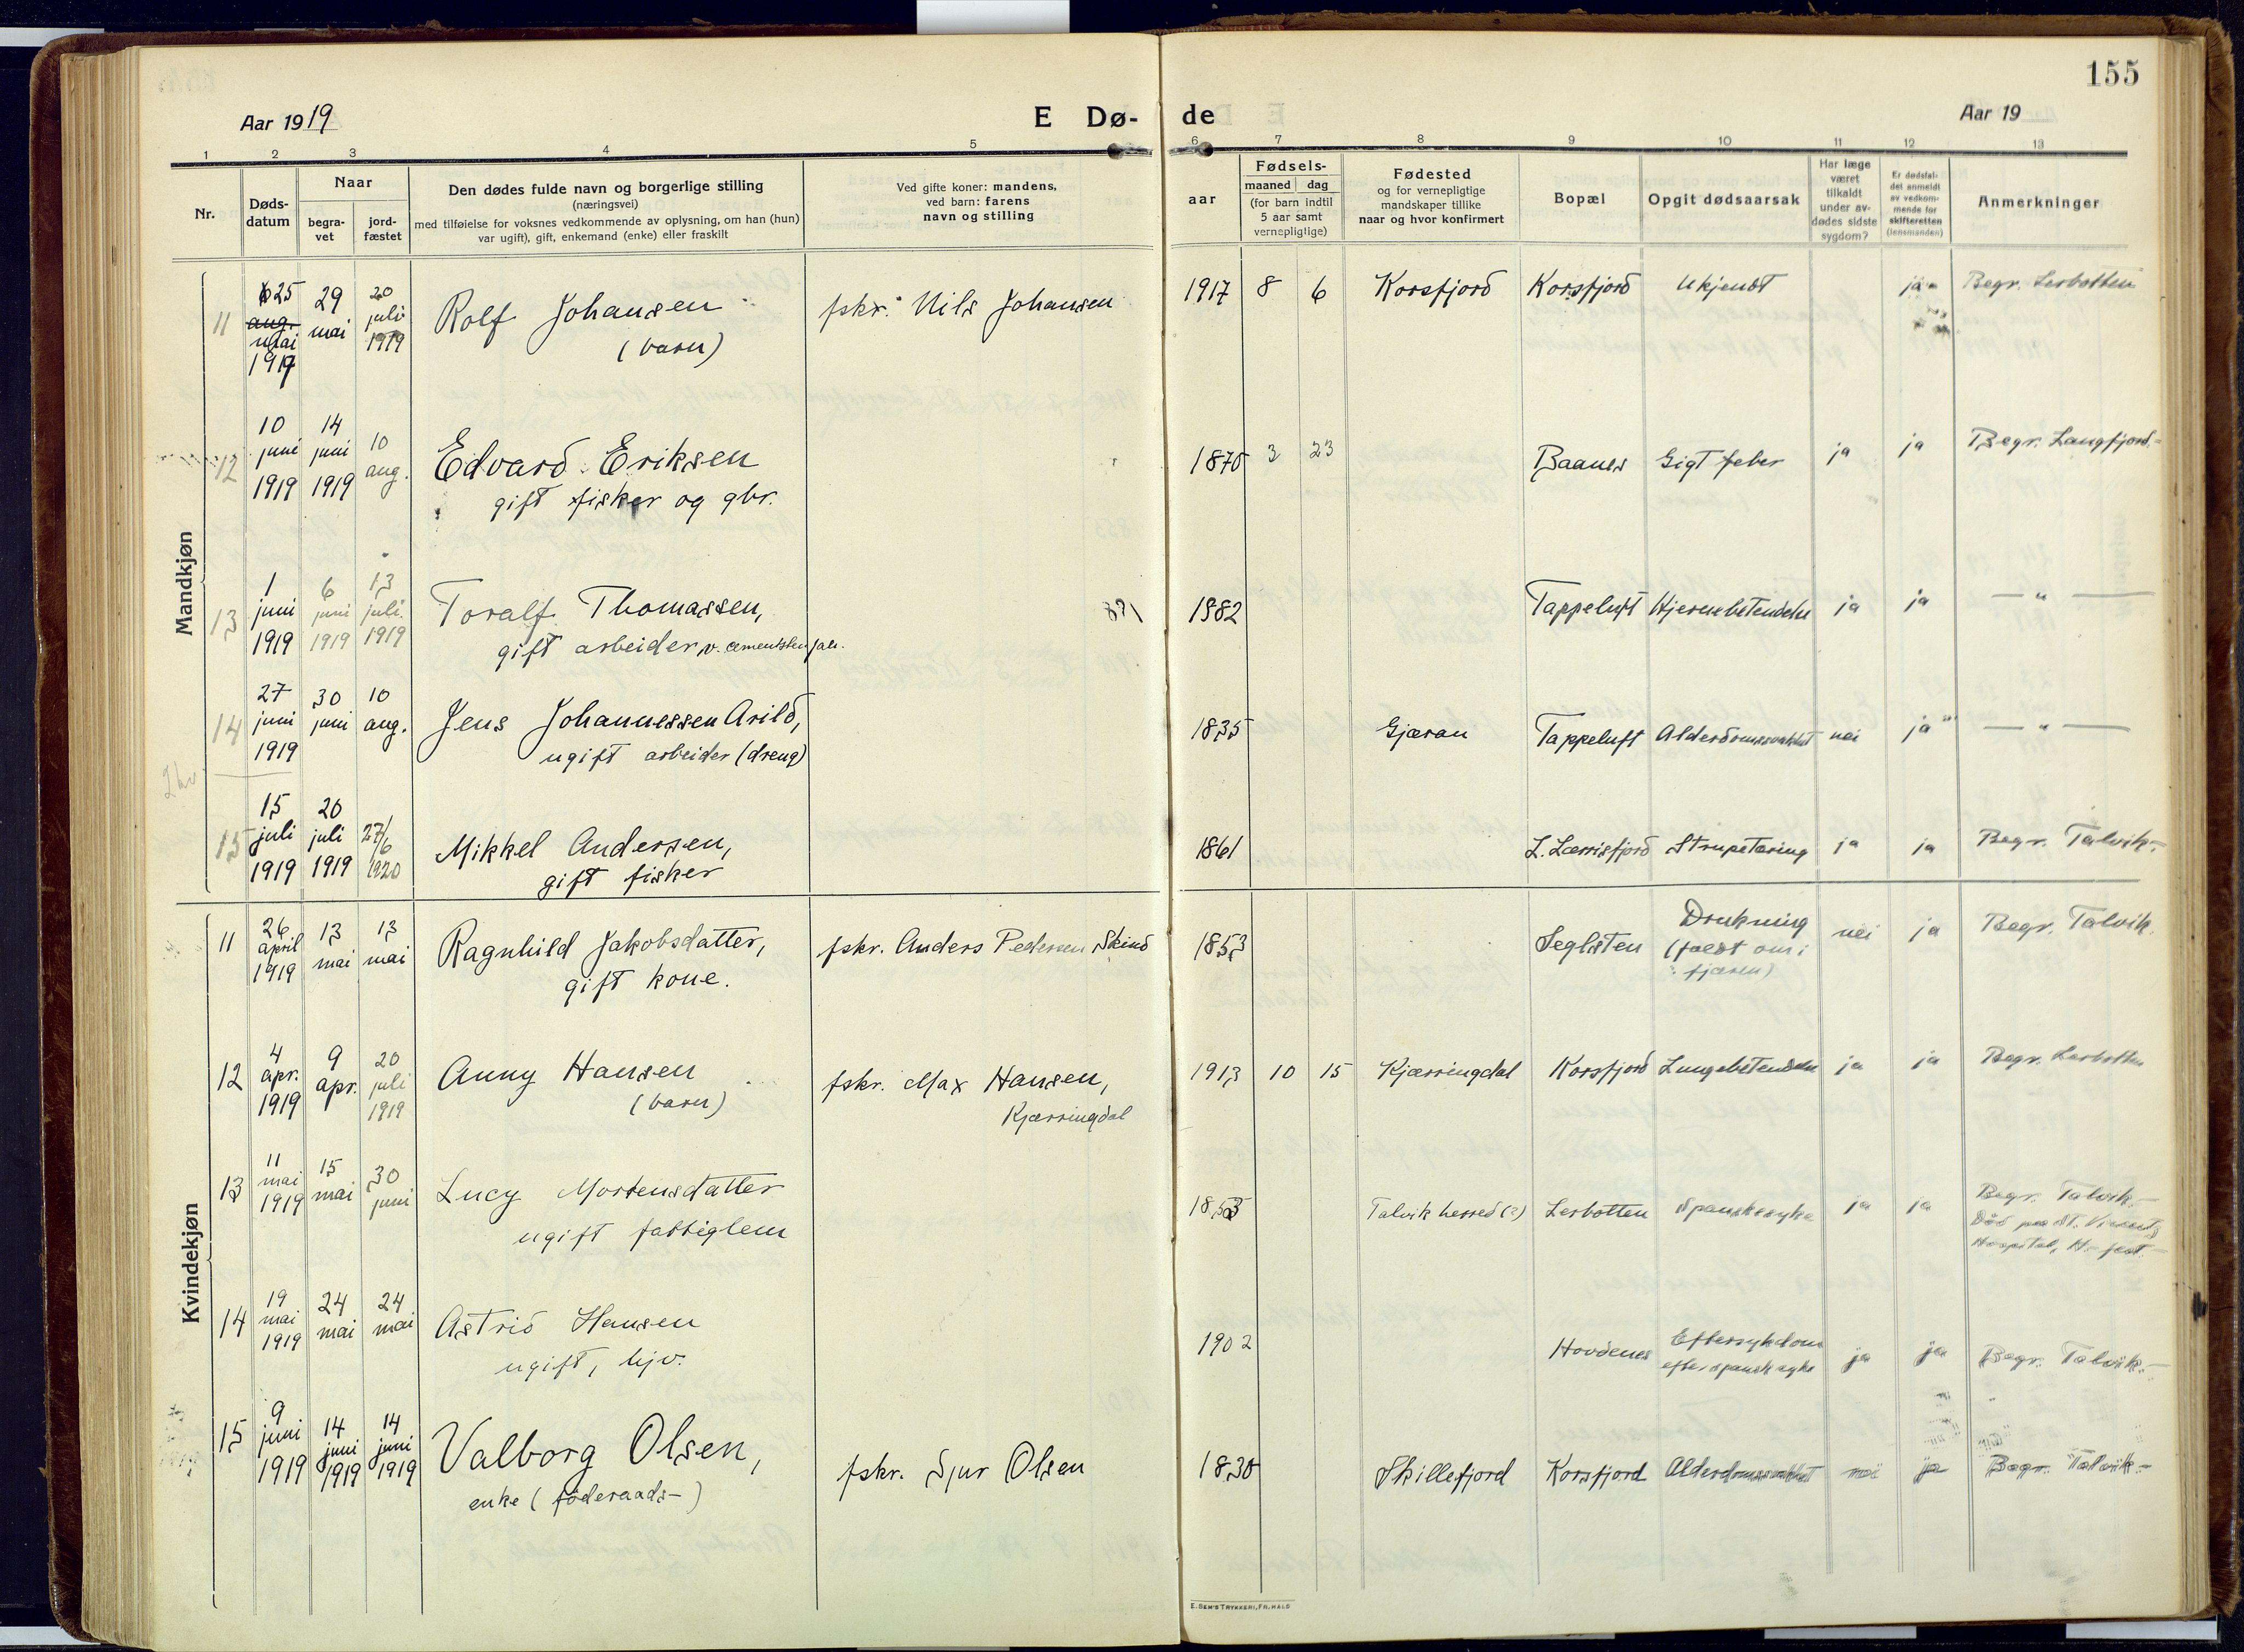 155
Aar 1919
E Dø-
de
Aar 19
1 2 3 4 5 6 7 8 9 10 11 12 13
Nr.
Døds-
datum
Naar
begra-
vet
jord-
fæstet
Den dødes fulde navn og borgerlige stilling
(næringsvei)
med tilføielse for voksnes vedkommende av oplysning, om han (hun)
var ugift), gift, enkemand (enke) eller fraskilt
Ved gifte koner: mandens,
ved barn: farens
navn og stilling
aar
Fødsels-
maaned dag
(for barn indtil
5 aar samt
vernepligtige)
Fødested
og for vernepligtige
mandskaper tillike
naar og hvor konfirmert
Bopæl
Opgit dødsaarsak
Har læge
været
tilkaldt
under av-
dødes sidste
sygdom?
Er dødsfal-
det anmeldt
av vedkom-
mende for
skifteretten
(lensmanden)
Anmerkninger
Mandkjøn
11 25 aug. mai 1919 29 mai 20 juli 1919 Rolf Johansen fskr. Nils Johansen 1917 8 6 Korsfjord Korsfjord Ukjendt ja Begr. Lerbotten
(barn)
12 10 juni 1919 14 juni 1919 10 aug. Edvard Eriksen 1870 3 23 Baanes Gigtfeber ja ja Begr. Langfjord
gift fisker og gbr.
13 1 juni 1919 6 juni 1919 13 juli 1919 Toralf Thomassen, 1882 Tappeluft Hjernebetendelse ja ja — " —
gift arbeider v. cementstenfabr.
14 27 juni 1919 30 juni 10 aug. Jens Johannessen Arild, 1835 Gjæran Tappeluft Alderdomssvakhet nei ja — " —
ugift arbeider (dreng)
15 15 juli 1919 20 juli 1919 27/6 1920 Mikkel Andersen, 1861 L. Lerrisfjord Strupetæring ja ja Begr. Talvik
gift fisker
Kvindekjøn
11 26 april 1919 13 mai 13 mai Ragnhild Jakobsdatter, fskr. Anders Pedersen Skind 1853 Seglsten Drukning nei ja Begr. Talvik
gift kone. (faldt om i
fjæren)
12 4 apr. 1919 9 apr. 20 juli 1919 Anny Hansen fskr. Max Hansen, 1913 10 15 Kjærringdal Korsfjord Lungebetendelse ja ja Begr. Lerbotten
(barn) Kjærringdal
13 11 mai 1919 15 mai 30 juni Lucy Mortensdatter Talvik herred (?) Lerbotten Spanskesyke ja ja Begr. Talvik
ugift fattiglem Död paa St. Vincents
Hospital, H.-fest.
14 19 mai 1919 24 mai 24 mai Astrid Hansen 1902 Hovdenes Eftersykdom ja ja Begr. Talvik
ugift, hjv. efter spansk syke
15 9 juni 1919 14 juni 1919 14 juni 1919 Valborg Olsen, fskr. Sjur Olsen 1830 Skillefjord Korsfjord Alderdomssvakhet nei ja Begr. Talvik
enke (føderaads-)